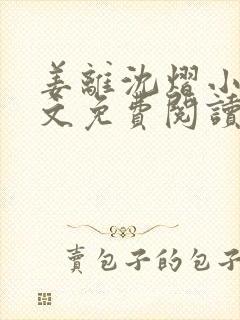 姜離沈熠小
文免費閱讀
賣包子的包子